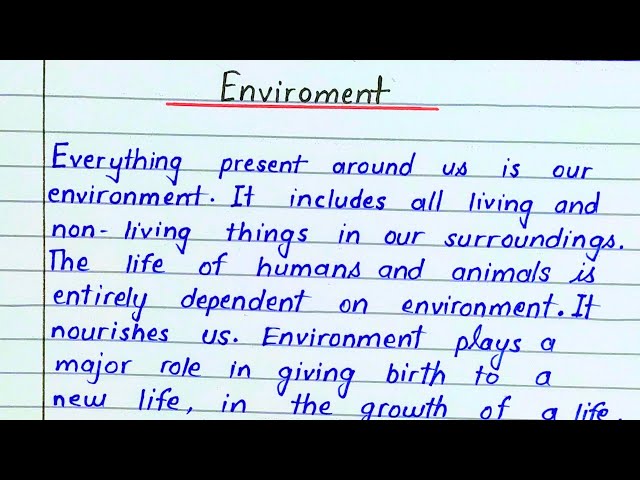 Enviroment
Everything present around us is our
environment. It includes all living and
non-living things in our surroundings.
The life of humans and animals is
entirely dependent on environment. It
nourishes us. Environment plays a
major role in giving birth to a
new life, in the growth of a life,